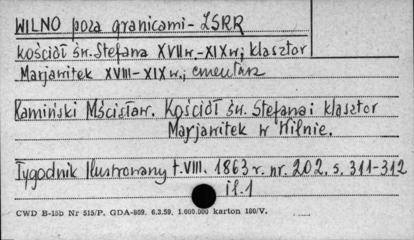 WILNO poza granicami - ZSRR
Kościół św. Stefana XVII w.-XIX w; klasztor
Marjawitek XVIII-XIX w.; cmentarz
Kamiński Mścisław. Kościół św. Stefana i klasztor
Marjawitek w Wilnie.
Tygodnik Ilustrowany t. VIII. 1863 r. nr. 202. s. 311-312
il. 1
CWD B-15b Nr 515/P. GDA-809. 6.3.59. 1.000.000 karton 180/V.